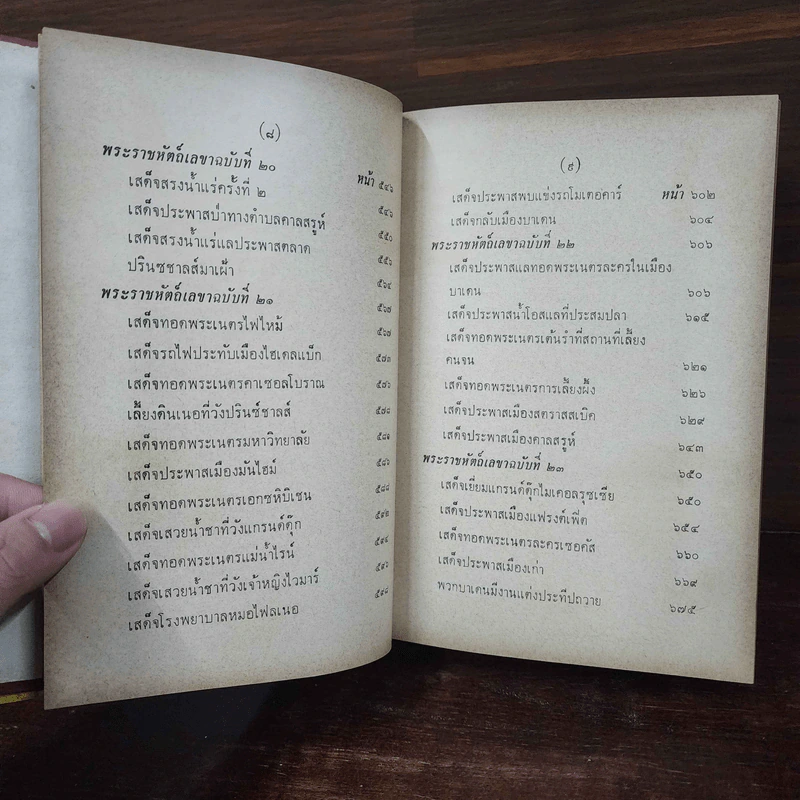 (๘)
พระราชหัตถ์เลขาฉบับที่ ๒๐
หน้า ๕๔๖
เสด็จสรงน้ำแร่ครั้งที่ ๒ ๕๔๖
เสด็จประพาสป่าทางตำบลคาลสรูห์ ๕๕๐
เสด็จสรงน้ำแร่แลประพาสตลาด ๕๕๖
ปรินซชาลส์มาเฝ้า ๕๖๔
พระราชหัตถ์เลขาฉบับที่ ๒๑ ๕๖๗
เสด็จทอดพระเนตรไฟไหม้ ๕๖๗
เสด็จรถไฟประทับเมืองไฮเดลแบ็ก ๕๗๓
เสด็จทอดพระเนตรคาเซอลโบราณ ๕๗๖
เลี้ยงดินเนอที่วังปรินซ์ชาลส์ ๕๗๘
เสด็จทอดพระเนตรมหาวิทยาลัย ๕๘๑
เสด็จประพาสเมืองมันไฮม์ ๕๘๖
เสด็จทอดพระเนตรเอกซหิบิเชน ๕๘๘
เสด็จเสวยน้ำชาที่วังแกรนด์ดุ๊ก ๕๙๒
เสด็จทอดพระเนตรแม่น้ำไรน์ ๕๙๔
เสด็จเสวยน้ำชาที่วังเจ้าหญิงไวมาร์ ๕๙๖
เสด็จโรงพยาบาลหมอไฟลเนอ ๕๙๘
(๙)
เสด็จประพาสพบแข่งรถโมเตอคาร์ หน้า ๖๐๒
เสด็จกลับเมืองบาเดน ๖๐๔
พระราชหัตถ์เลขาฉบับที่ ๒๒ ๖๐๖
เสด็จประพาสแลทอดพระเนตรละครในเมือง
บาเดน ๖๐๖
เสด็จประพาสน้ำโอสแลที่ประสมปลา ๖๑๕
เสด็จทอดพระเนตรเต้นรำที่สถานที่เลี้ยง
คนจน ๖๒๑
เสด็จทอดพระเนตรการเลี้ยงผึ้ง ๖๒๖
เสด็จประพาสเมืองสตราสสเบิค ๖๒๙
เสด็จประพาสเมืองคาลสรูห์ ๖๔๓
พระราชหัตถ์เลขาฉบับที่ ๒๓ ๖๕๐
เสด็จเยี่ยมแกรนด์ดุ๊กไมเคอลรุซเซีย ๖๕๐
เสด็จประพาสเมืองแฟรงต์เฟิต ๖๕๔
เสด็จทอดพระเนตรละครเซอคัส ๖๖๐
เสด็จประพาสเมืองเก่า ๖๖๙
พวกบาเดนมีงานแต่งประทีปถวาย ๖๗๕